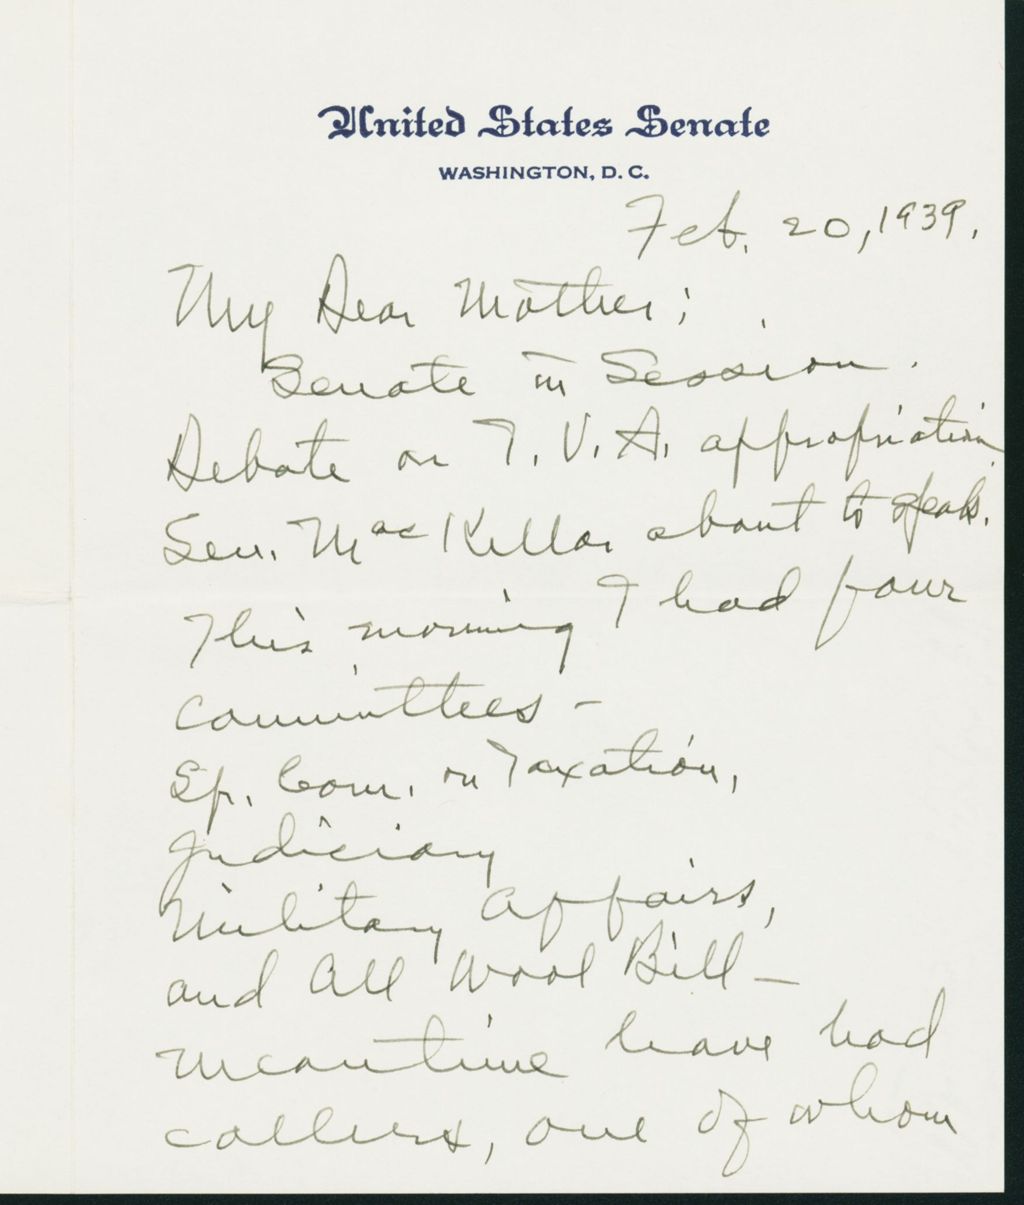 United States Senate
WASHINGTON, D. C.
Feb. 20, 1939.
My Dear Mother;
Senate in Session.
Debate on T. V. A. appropriation
Sen. MacKellar about to speak.
This morning I had four
committees -
Sp. Com. on Taxation,
Judiciary
Military Affairs,
and All Wool Bill -
Meantime have had
callers, one of whom